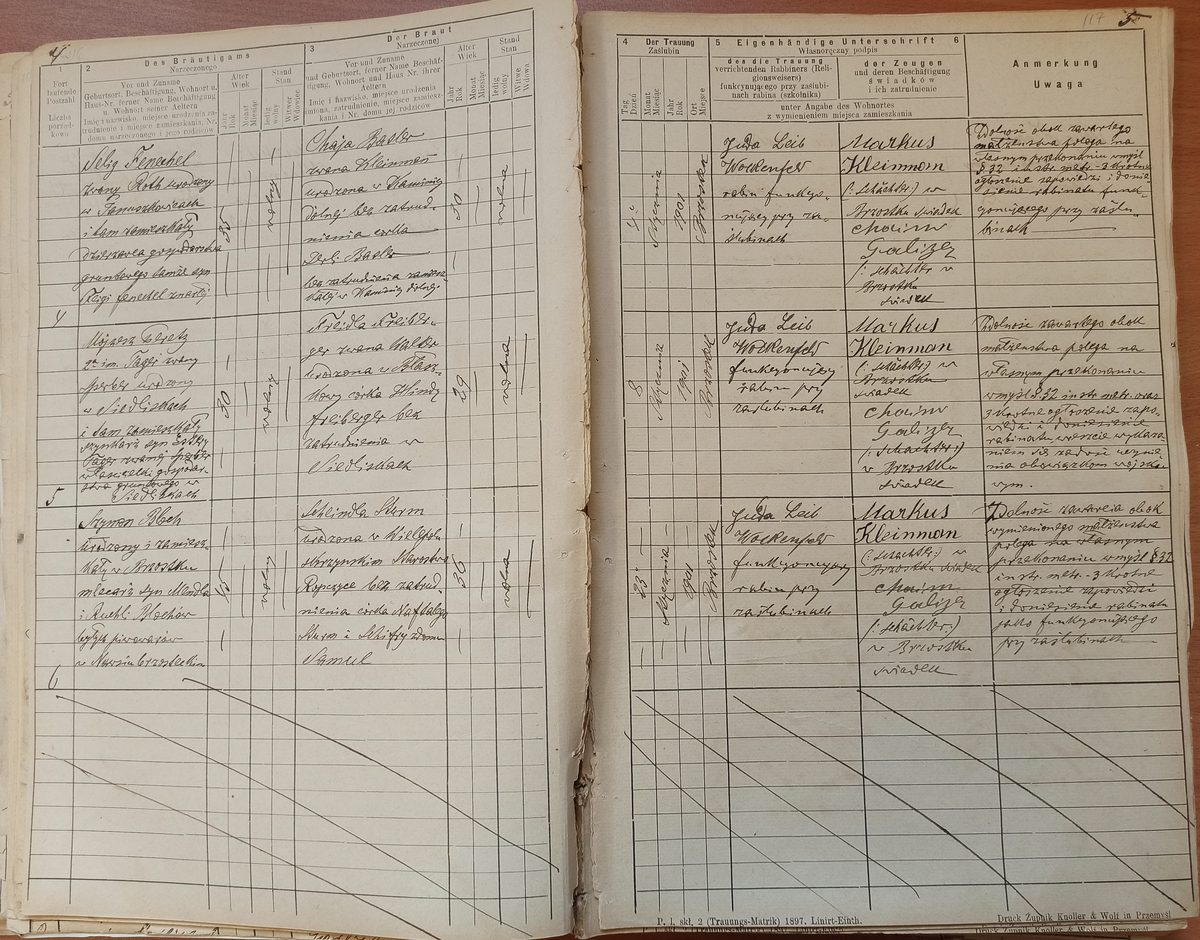 4
1
Fort
laufende
Postzahl
Liczba
porząd-
kowa
2
Des Bräutigams
Narzeczonego
Vor und Zuname
Geburtsort, Beschäftigung, Wohnort u.
Haus-Nr. ferner Name Beschäftigung
u. Wohnort seiner Aeltern
Imię i nazwisko, miejsce urodzenia za-
trudnienie i miejsce zamieszkania, Nr.
domu narzeczonego i jego rodziców
Alter
Wiek
Jahr
Rok
Monat
Miesiąc
Stand
Stan
ledig
wolny
Witwer
Wdowiec
3
Der Braut
Narzeczonej
Vor und Zuname
und Geburtsort, ferner Name Beschäf-
tigung, Wohnort und Haus Nr. ihrer
Aeltern
Imię i nazwisko, miejsce urodzenia
Alter
Wiek
Jahr
Rok
Monat
Miesiąc
Stand
Stan
ledig
wolny
Witwe
Wdowa
Selig Fenechel
zwany Roth urodzony
w Januszkowicach
i tam zamieszkały
dzierżawca gospodarstwa
gruntowego tamże syn
Feigi Fenechel
35
wolny
Chaja Basler
zwana Kleinman
urodzona w Kamienicy
dolnej bez zatrud-
nienia córka
Perli Basler
bez zatrudnienia zamiesz
kałej w Kamienicy dolnej
30
wolna
4
Mojżesz Peretz
2ga im. Tager zwany
Sperber urodzony
w Siedliskach
i tam zamieszkały
szynkarz syn Estery
Tager zwanej Sperber
właścicielki gospodar-
stwa gruntowego w
Siedliskach
30
wolny
Freidla Freiber-
ger zwana Kalber
urodzona w
córka Hindy
Freiberger bez
zatrudnienia w
Siedliskach
29
wolna
5
Szymon Bloch
urodzony i zamiesz-
kały w Brzostku
mleczarz syn Mendla
i Ruchli Blochów
byłych piwowarów
w Nawsiu brzosteckim
45
wolny
Scheindla Sturm
urodzona w Wielopolu
skrzyńskim Starostwo
Ropczyce bez zatrud-
nienia córka Naftalego
Sturm i Schifry domu
Samuel
36
wolna
6
117
5
4
Der Trauung
Zaślubin
Tag
Dzień
Monat
Miesiąc
Jahr
Rok
Ort
Miejsce
5
Eigenhändige Unterschrift
Własnoręczny podpis
6
des die Trauung
verrichtenden Rabbiners (Reli-
gionsweisers)
funkcynującego przy zaślubi-
nach rabina (szkolnika)
der Zeugen
und deren Beschäftigung
świadków
i ich zatrudnienie
unter Angabe des Wohnortes
z wymienieniem miejsca zamieszkania
Anmerkung
Uwaga
1901
Brzostek
Juda Leib
Wockenfeld
rabin funkcyo-
nujący przy za-
ślubinach
Markus
Kleinman
(: Schächter :) w
Brzostku świadek
Chaim
Galizer
(: Schächter w
Brzostku
świadek
Zdolność obok zawartego
małżeństwa polega na
własnym przekonaniu w myśl
§ 32 instr. metr. 3 krotne
ogłoszenie zapowiedzi i donie-
sienie rabinatu funk-
gonującego przy zaślu-
binach
8
1901
Brzostek
Juda Leib
Wockenfeld
funkcyonujący
rabin przy
zaślubinach
Markus
Kleinman
(: Schächter :) w
Brzostku
świadek
Chaim
Galizer
(: Schächter :)
w Brzostku
świadek
Zdolność zawartego obok
małżeństwa polega na
własnym przekonaniu
w myśl § 32 instr. metr. oraz
3 krotne ogłoszenie zapo-
wiedzi i doniesienie
rabinatu wreszcie wykaza-
niem się zadość uczynie-
nia obowiązkom wojsko-
wym.
23
1901
Brzostek
Juda Leib
Wockenfeld
funkcyonujący
rabin przy
zaślubinach
Markus
Kleinman
(: Schächter :) w
Brzostku świadek
Chaim
Galizer
(: Schächter :)
w Brzostku
świadek
Zdolność zawarcia obok
wymienionego małżeństwa
polega na własnym
przekonaniu w myśl § 32
instr. metr. 3 krotne
ogłoszenie zapowiedzi
i doniesienie rabinatu
jako funkcyonującego
przy zaślubinach
P. l. skł. 2 (Trauungs-Matrik) 1897, Linirt-Einth.
Druck Żupnik Knoller & Wolf in Przemyśl